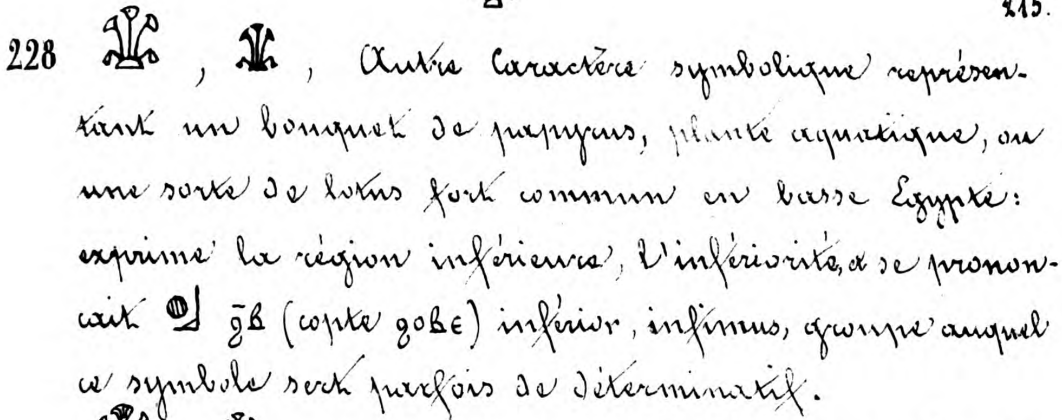 215.
228 𓇇, 𓇇, Autre Caractère symbolique représen-
tant un bouquet de papyrus, plante aquatique, ou
une sorte de lotus fort commun en basse Egypte:
exprime la région inférieure, l'infériorité, & se pronon-
cait 𓐍𓃀 ϩ̄ⲃ (copte ϩⲟⲃⲉ) inférior, infimus, groupe auquel
ce symbole sert parfois de déterminatif.